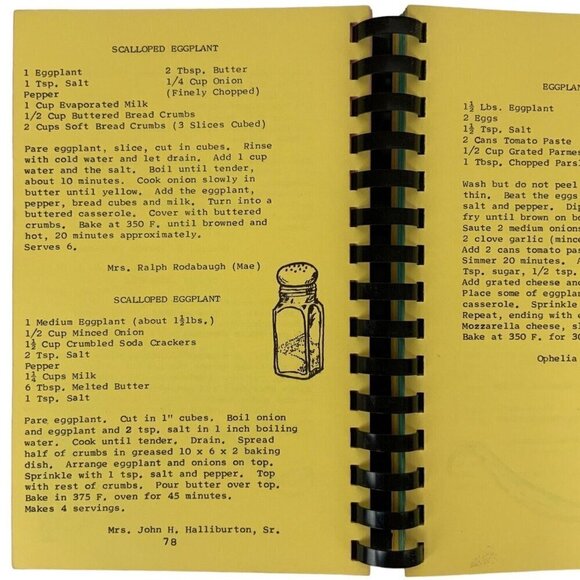 SCALLOPED EGGPLANT
1 Eggplant 2 Tbsp. Butter
1 Tsp. Salt 1/4 Cup Onion
Pepper (Finely Chopped)
1 Cup Evaporated Milk
1/2 Cup Buttered Bread Crumbs
2 Cups Soft Bread Crumbs (3 Slices Cubed)
Pare eggplant, slice, cut in cubes. Rinse
with cold water and let drain. Add 1 cup
water and the salt. Boil until tender,
about 10 minutes. Cook onion slowly in
butter until yellow. Add the eggplant,
pepper, bread cubes and milk. Turn into a
buttered casserole. Cover with buttered
crumbs. Bake at 350 F. until browned and
hot, 20 minutes approximately.
Serves 6.
Mrs. Ralph Rodabaugh (Mae)
SCALLOPED EGGPLANT
1 Medium Eggplant (about 1½lbs.)
1/2 Cup Minced Onion
1½ Cup Crumbled Soda Crackers
2 Tsp. Salt
Pepper
1¼ Cups Milk
6 Tbsp. Melted Butter
1 Tsp. Salt
Pare eggplant. Cut in 1" cubes. Boil onion
and eggplant and 2 tsp. salt in 1 inch boiling
water. Cook until tender. Drain. Spread
half of crumbs in greased 10 x 6 x 2 baking
dish. Arrange eggplant and onions on top.
Sprinkle with 1 tsp. salt and pepper. Top
with rest of crumbs. Pour butter over top.
Bake in 375 F. oven for 45 minutes.
Makes 4 servings.
Mrs. John H. Halliburton, Sr.
78
EGGPLAN
1½ Lbs. Eggplant
2 Eggs
1½ Tsp. Salt
2 Cans Tomato Paste
1/2 Cup Grated Parmes
1 Tbsp. Chopped Parsl
Wash but do not peel
thin. Beat the eggs
salt and pepper. Dip
fry until brown on bo
Saute 2 medium onions
2 clove garlic (minc
Add 2 cans tomato pas
Simmer 20 minutes. A
Tsp. sugar, 1/2 tsp.
Add grated cheese and
Place some of eggplan
casserole. Sprinkle
Repeat, ending with e
Mozzarella cheese, sl
Bake at 350 F. for 30
Ophelia